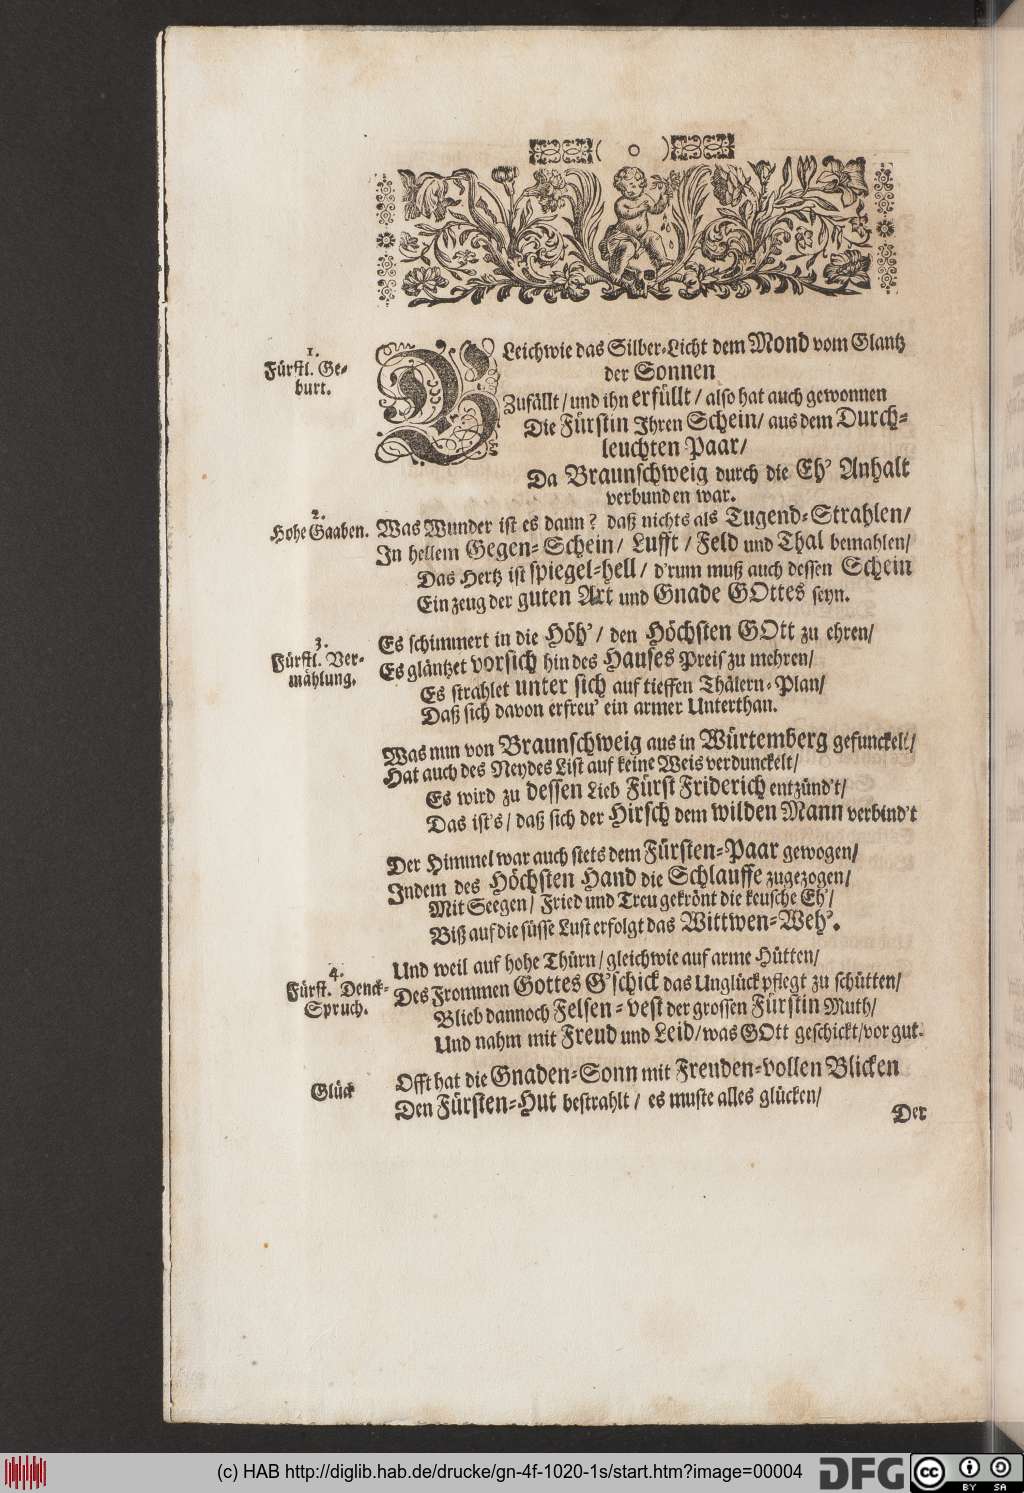 ( o )
1.
Fürstl. Ge-
burt.
GLeichwie das Silber-Licht dem Mond vom Glantz
der Sonnen
Zufällt / und ihn erfüllt / also hat auch gewonnen
Die Fürstin Ihren Schein / aus dem Durch-
leuchten Paar /
Da Braunschweig durch die Eh' Anhalt
verbunden war.
2.
Hohe Gaaben.
Was Wunder ist es dann? daß nichts als Tugend-Strahlen /
In hellem Gegen-Schein / Lufft / Feld und Thal bemahlen /
Das Hertz ist spiegel-hell / d'rum muß auch dessen Schein
Ein zeug der guten Art und Gnade GOttes seyn.
3.
Fürstl. Ver-
mählung.
Es schimmert in die Höh' / den Höchsten GOtt zu ehren /
Es gläntzet vorsich hin des Hauses Preis zu mehren /
Es strahlet unter sich auf tieffen Thälern-Plan /
Daß sich davon erfreu' ein armer Unterthan.
Was nun von Braunschweig aus in Würtemberg gefunckelt /
Hat auch des Neydes List auf keine Weis verdunckelt /
Es wird zu dessen Lieb Fürst Friderich entzünd't /
Das ist's / daß sich der Hirsch dem wilden Mann verbind't
Der Himmel war auch stets dem Fürsten-Paar gewogen /
Indem des Höchsten Hand die Schlauffe zugezogen /
Mit Seegen / Fried und Treu gekrönt die keusche Eh' /
Biß auf die süsse Lust erfolgt das Wittwen-Weh'.
4.
Fürst. Denck-
Spruch.
Und weil auf hohe Thürn / gleichwie auf arme Hütten /
Des Frommen Gottes G'schick das Unglück pflegt zu schütten /
Blieb dannoch Felsen-vest der grossen Fürstin Muth /
Und nahm mit Freud und Leid / was GOtt geschickt / vor gut.
Glück
Offt hat die Gnaden-Sonn mit Freuden-vollen Blicken
Den Fürsten-Hut bestrahlt / es muste alles glücken /
Der
(c) HAB http://diglib.hab.de/drucke/gn-4f-1020-1s/start.htm?image=00004
DFG
cc BY SA